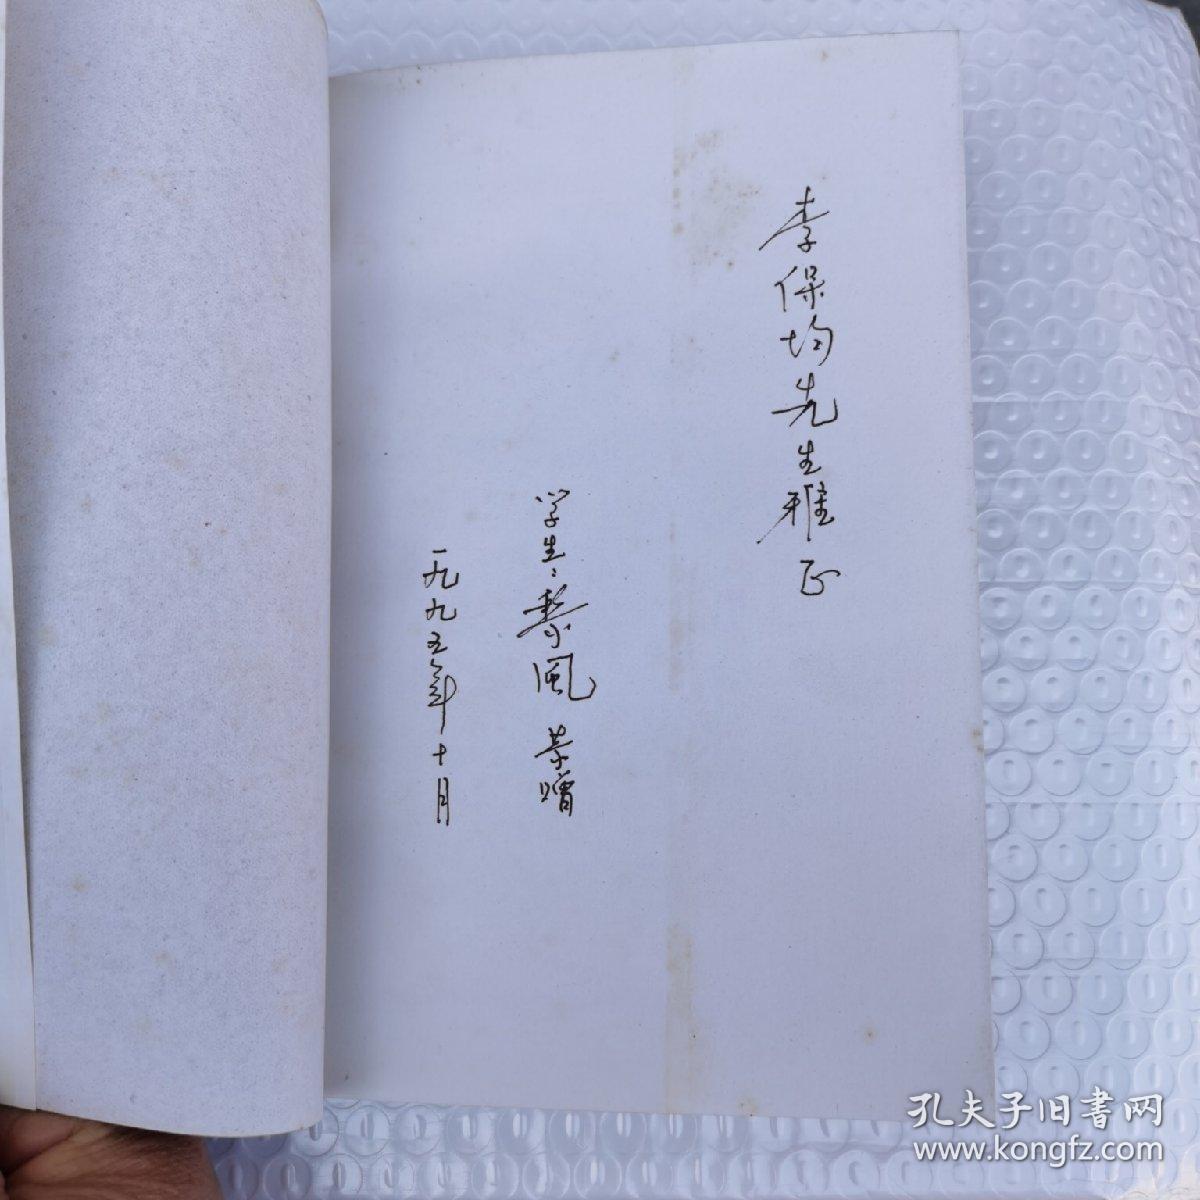 李保均先生雅正
学生：黎風 恭贈
一九九五年十月
孔夫子旧書网
www.kongfz.com